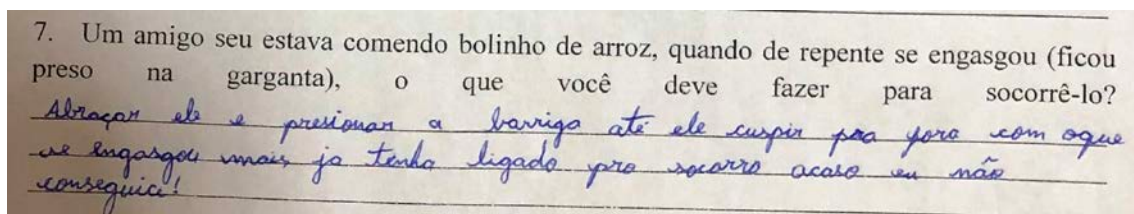 7. Um amigo seu estava comendo bolinho de arroz, quando de repente se engasgou (ficou
preso na garganta), o que você deve fazer para socorrê-lo?
Abraçar ele e presionar a barriga até ele cuspir pra fora com oque
se engasgou mais ja tenha ligado pro socorro acaso eu não
conseguici!